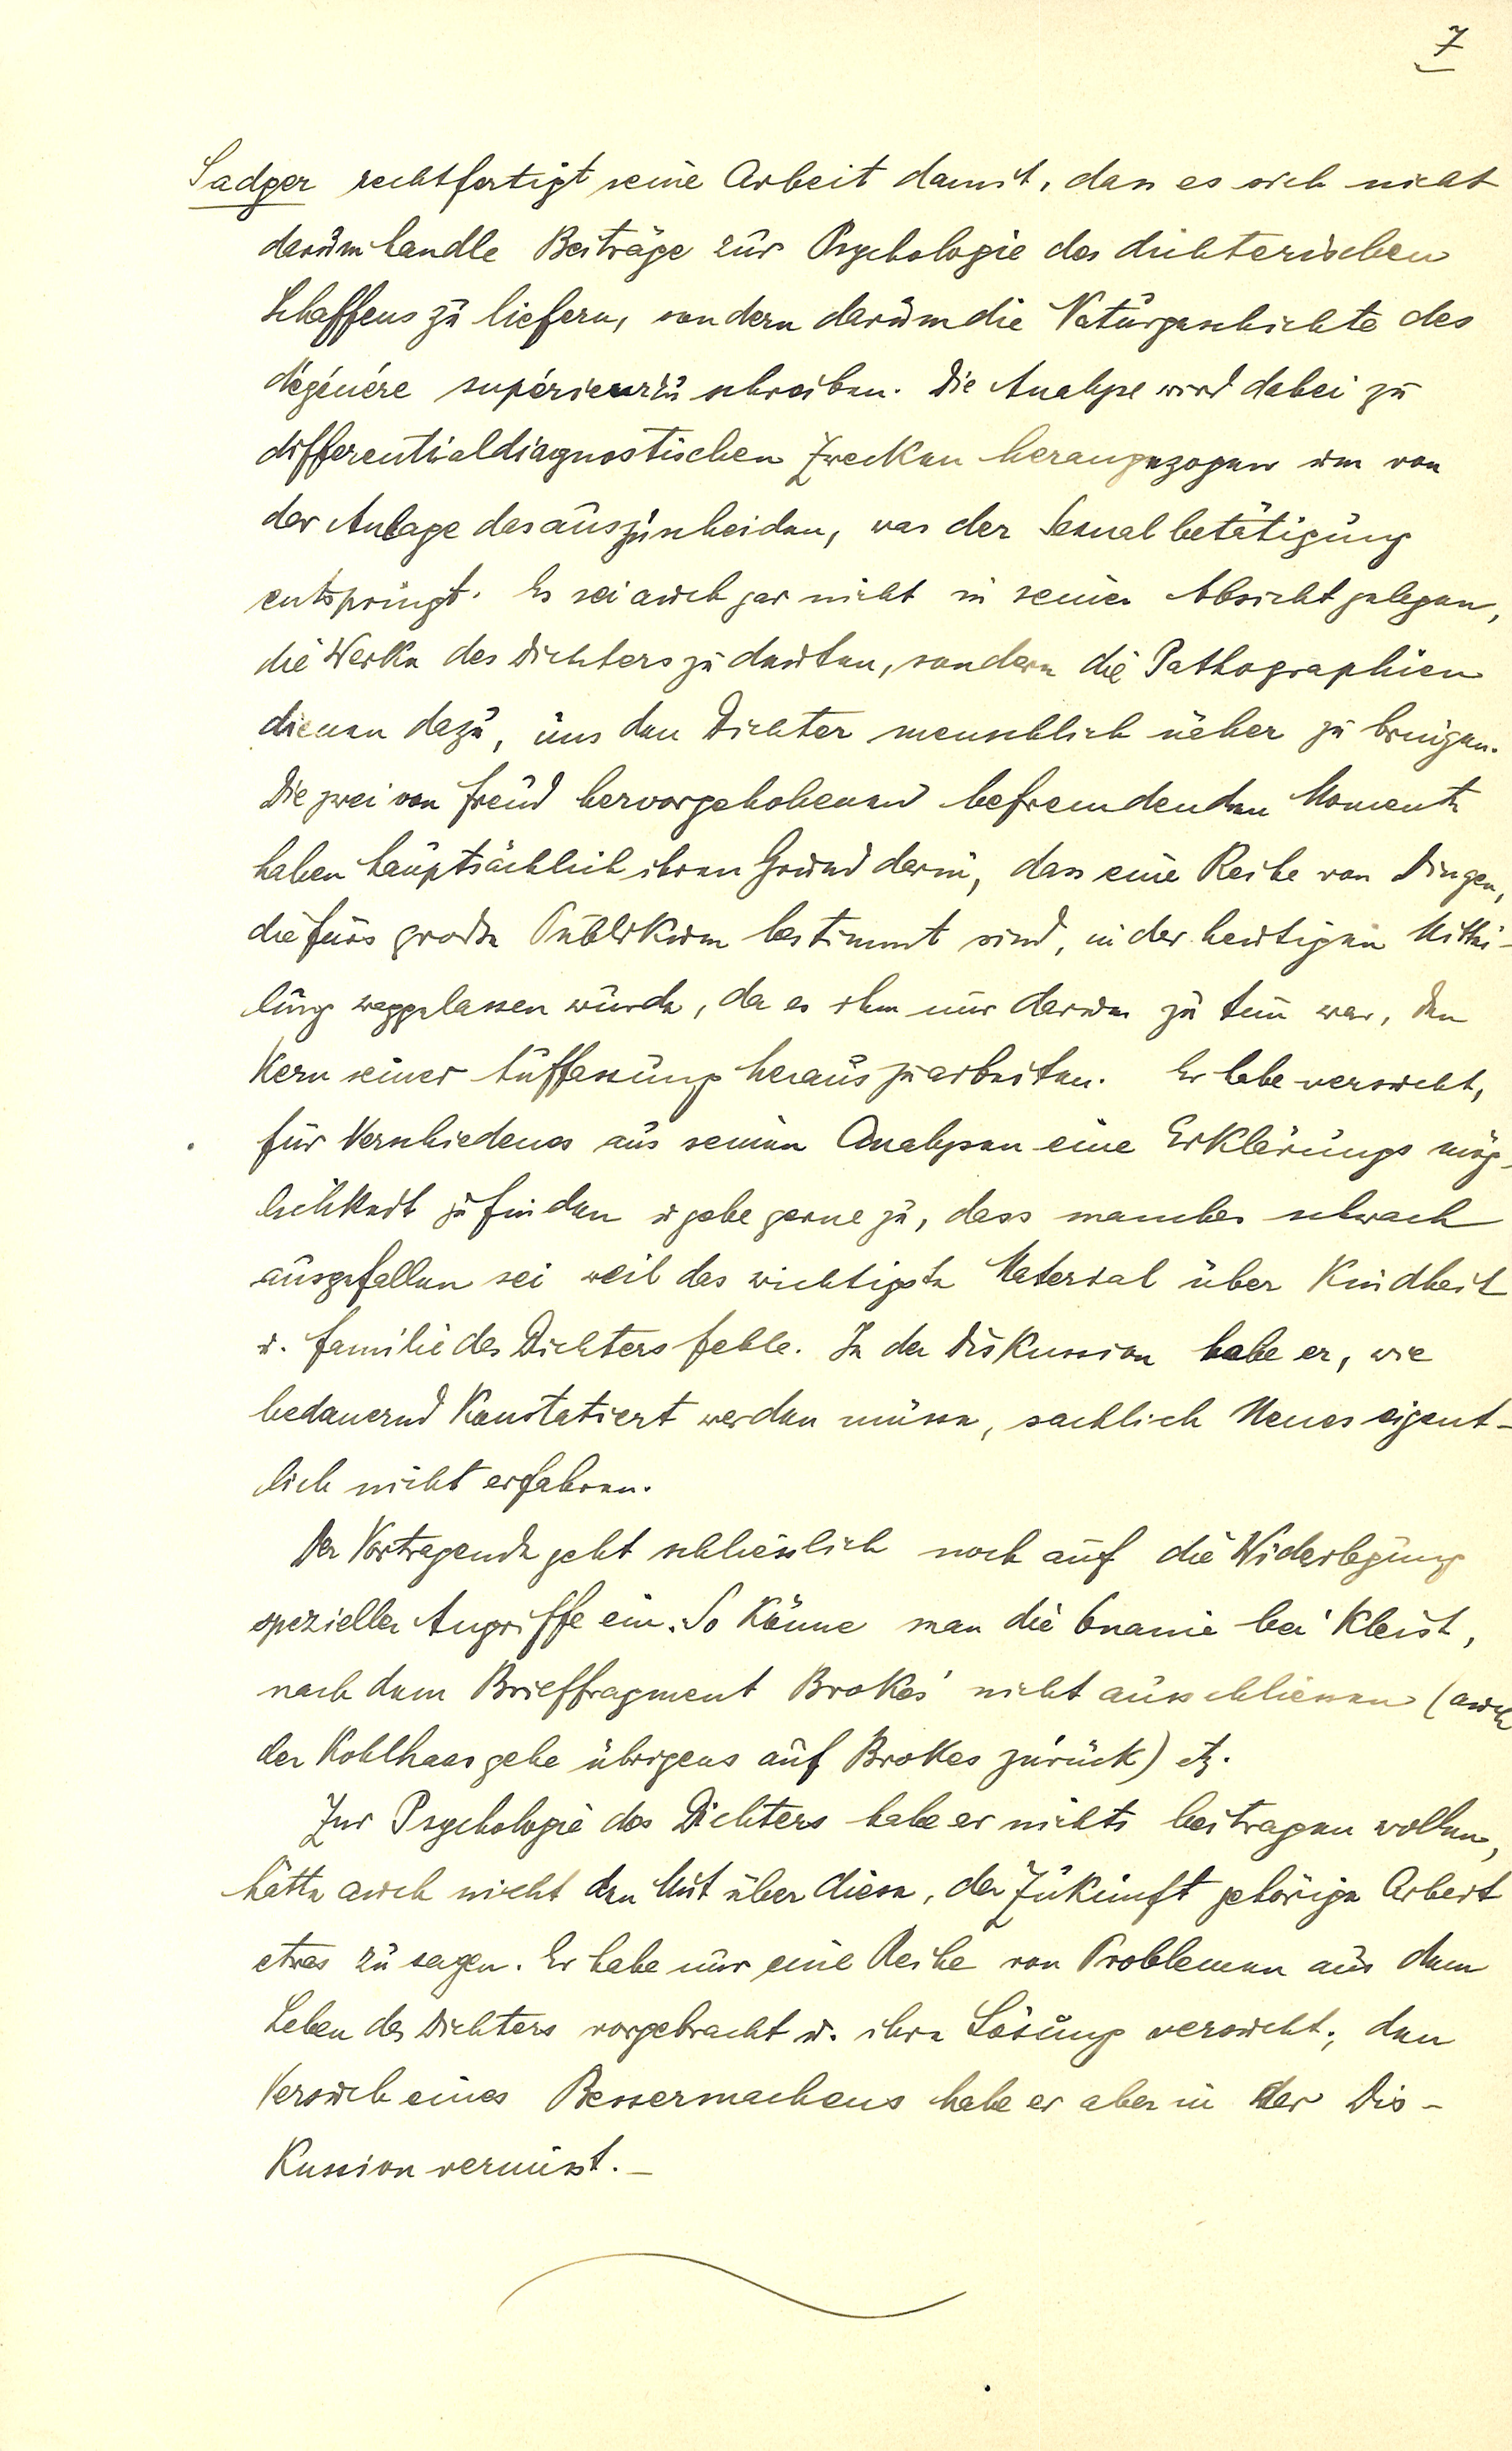 7
Sadger rechtfertigt seine Arbeit damit, dass es sich nicht
darum handle Beiträge zur Psychologie des dichterischen
Schaffens zu liefern, sondern darum die Naturgeschichte des
dégénére supérieur zu schreiben. Die Analyse wird dabei zu
differentialdiagnostischen Zwecken herangezogen um von
der Anlage das auszuscheiden, was der Sexualbetätigung
entspringt. Es sei auch gar nicht in seiner Absicht gelegen,
die Werke des Dichters zu deuten, sondern die Pathographien
dienen dazu, uns den Dichter menschlich näher zu bringen.
Die zwei von Freud hervorgehobenen befremdenden Momente
haben hauptsächlich ihren Grund darin, dass eine Reihe von Dingen,
die fürs grosse Publikum bestimmt sind, in der heutigen Mittei-
lung weggelassen wurde, da es ihm nur darum zu tun war, den
Kern seiner Auffassung herauszuarbeiten. Er habe versucht,
für Verschiedenes aus seinen Analysen eine Erklärungs mög-
lichkeit zu finden u gebe gerne zu, dass manches schwach
ausgefallen sei weil das wichtigste Material über Kindheit
u. Familie des Dichters fehle. In der Diskussion habe er, wie
bedauernd Konstatiert werden müsse, sachlich Neues eigent-
lich nicht erfahren.
Der Vortragende geht schliesslich noch auf die Widerlegung
spezieller Angriffe ein. So Könne man die Onanie bei Kleist,
nach dem Brieffragment Brokes' nicht ausschliessen (auch
der Kohlhaas gehe übrigens auf Brokes zurück) etz.
Zur Psychologie des Dichters habe er nichts beitragen wollen,
hätte auch nicht den Mut über diese, der Zukunft gehörige Arbeit
etwas zu sagen. Er habe nur eine Reihe von Problemen aus dem
Leben des Dichters vorgebracht u. ihre Lösung versucht; den
Versuch eines Bessermachens habe er aber in der Dis-
Kussion vermisst. –